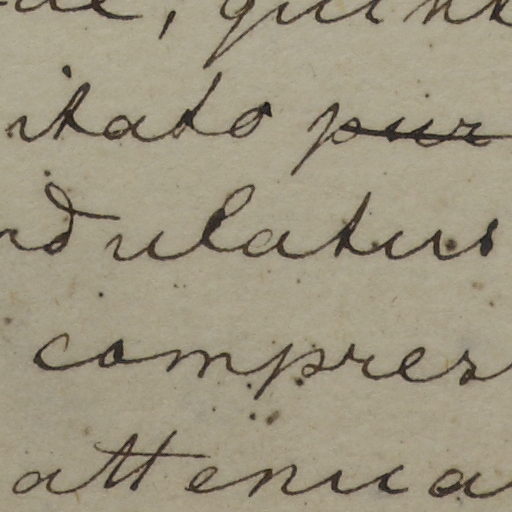 itato pur
ndulatus
compres
attenua